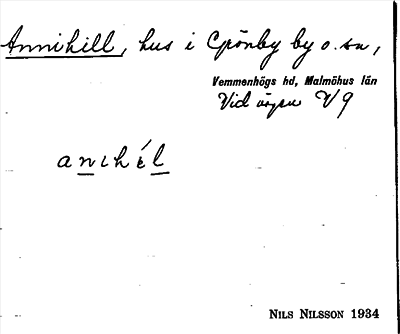 Annihill, hus i Grönby by o. sn,
Vemmenhögs hd, Malmöhus län
Vid V9
anıhél
NILS NILSSON 1934